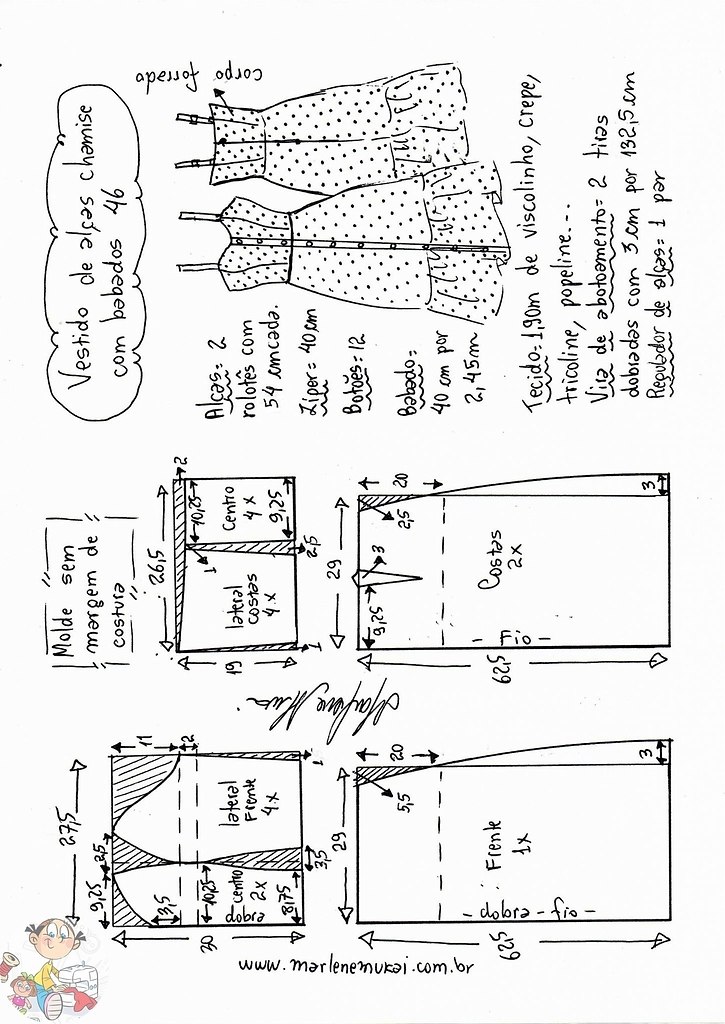 Vestido de alças chamise
com babados 46
corpo
forrado
Alças= 2
rolotês com
54 cm cada.
Ziper= 40 cm
Botões= 12
Babado=
40 cm por
2,45m
Tecido= 1,90m de viscolinho, crepe,
tricoline, popeline...
Vira de abotoamento= 2 tiras
dobradas com 3 cm por 132,5 cm
Regulador de alças= 1 par
Molde sem
margem de
costura
26,5
2
19
10,25
Centro
4x
9,25
1
2,5
lateral
costas
4x
1
29
20
2,5
3
9,25
Costas
2x
- Fio -
62,5
3
27,5
11
2
9,25
2,5
3,5
30
10,25
centro
2x
dobra
8,75
3,5
lateral
Frente
4x
1
29
20
5,5
Frente
1x
- dobra - fio -
62,5
3
www.marlenemukai.com.br